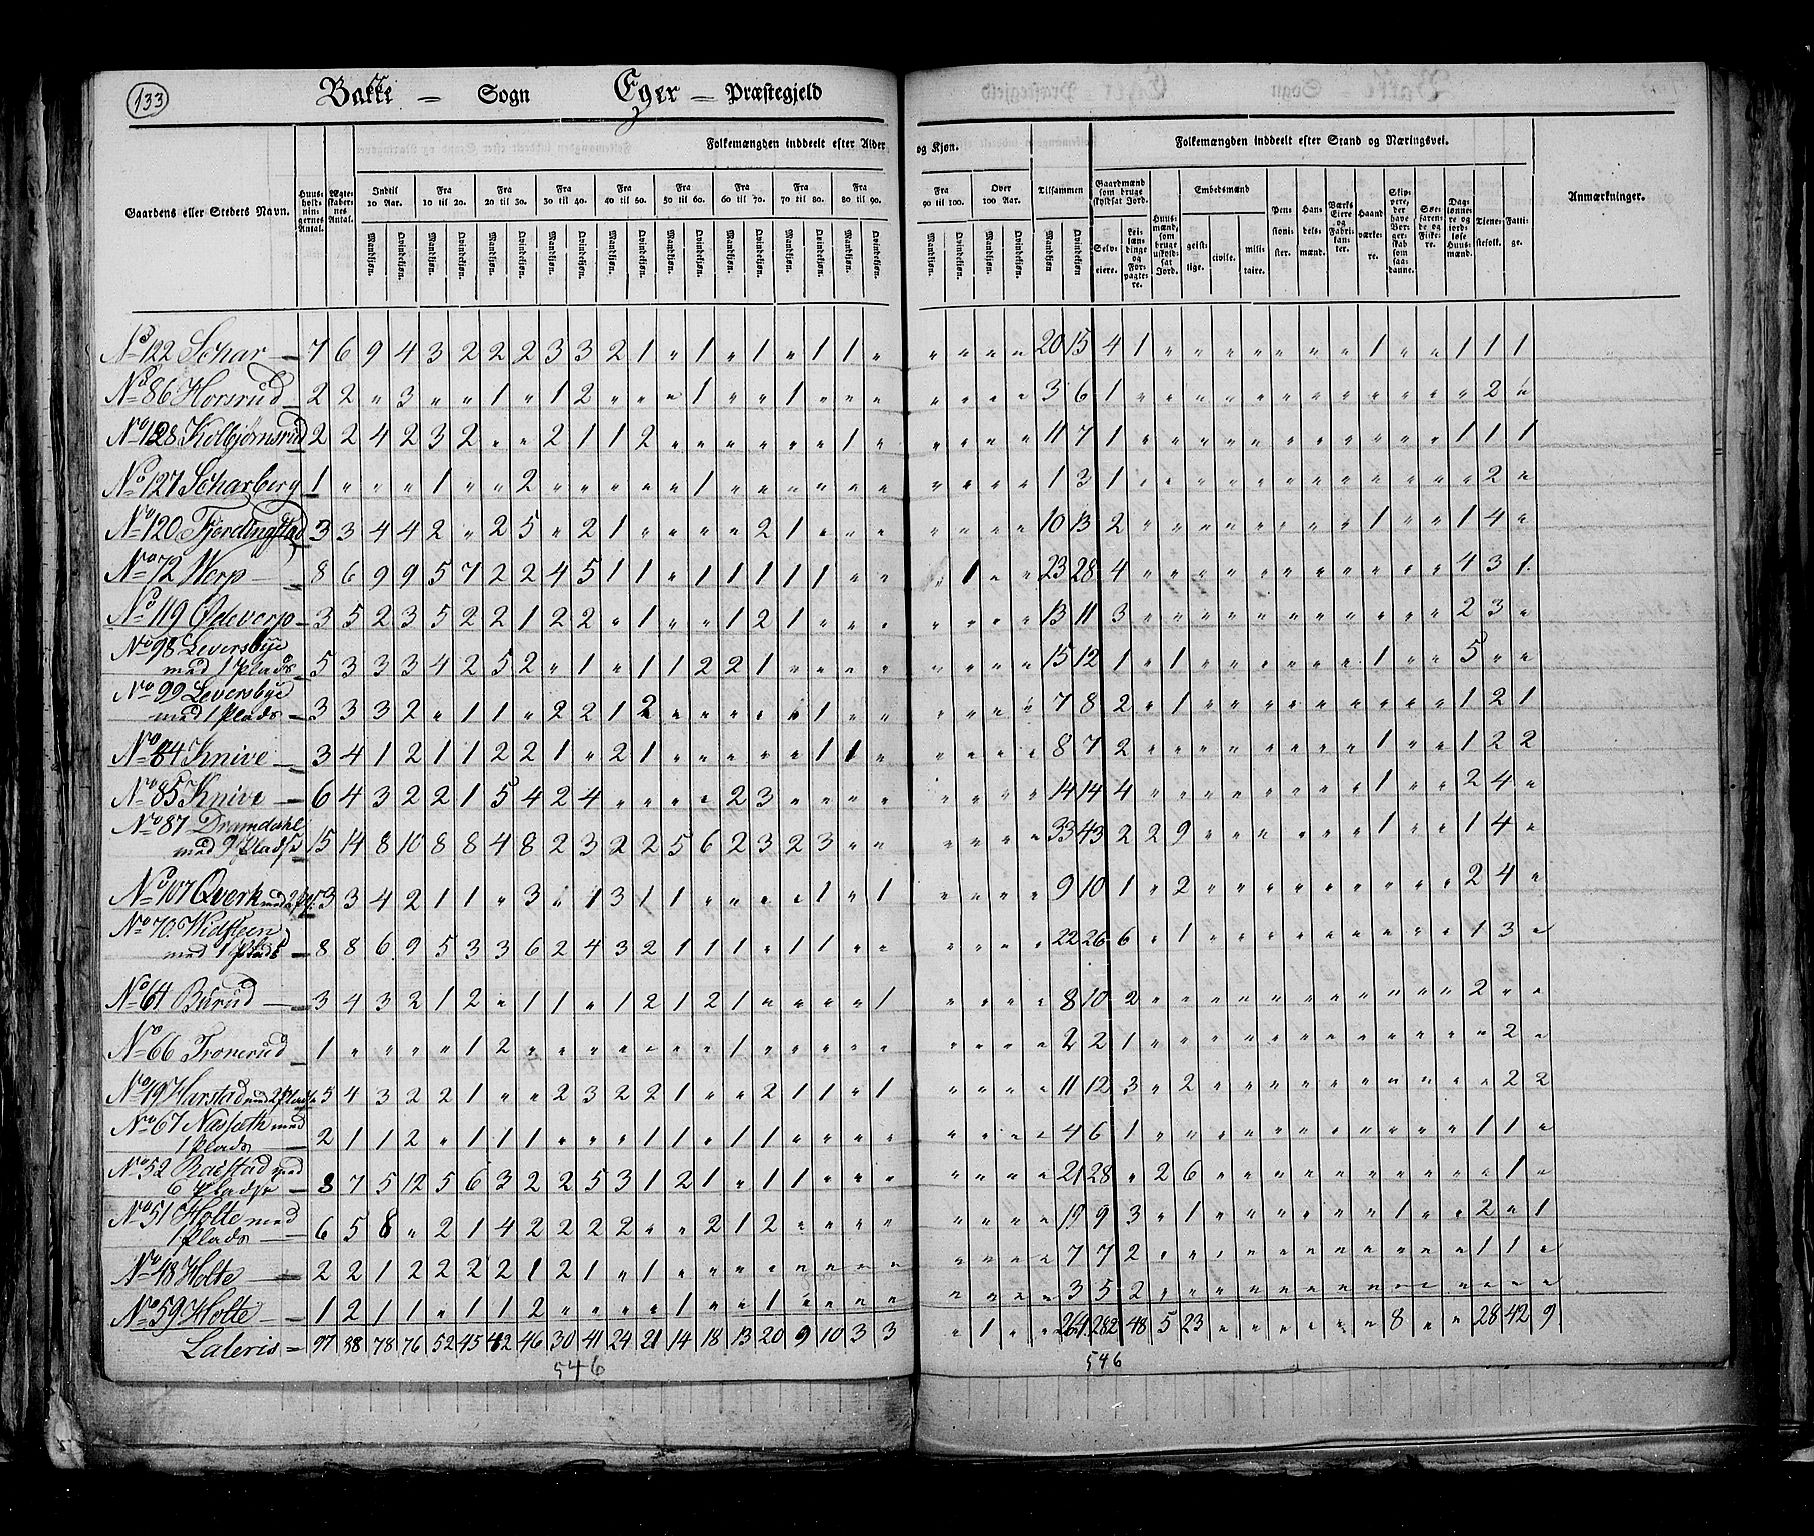 133
Bakke = Sogn Eger = Præstegjeld
Folkemængden inddeelt efter Alder og Kjøn.
Folkemængden inddeelt efter Stand og Næringsvei.
Gaardens eller Stedets Navn.
Huusholdningernes Antal.
Ægteskabernes Antal.
Indtil 10 Aar.
Fra 10 til 20.
Fra 20 til 30.
Fra 30 til 40.
Fra 40 til 50.
Fra 50 til 60.
Fra 60 til 70.
Fra 70 til 80.
Fra 80 til 90.
Fra 90 til 100.
Over 100 Aar.
Tilsammen
Mandkjøn. Qvindekjøn.
Gaardmænd som bruge skyldsat Jord.
Selveiere.
Leilændinge og Forpagtere.
Huusmænd, som bruge uskyldsat Jord.
Embedsmænd
geistlige.
civile.
militaire.
Pensionister.
Handelsmænd.
Værks Eiere og Fabrikanter.
Haandværkere.
Skippere, der have Borgerskab som saadanne.
Søefarende og Fiskere.
Daglønnere og jordløse Huusmænd.
Tjenestefolk.
Fattige.
Anmærkninger.
No 122 Schar 7 6 9 4 3 2 2 2 3 3 2 1 " 1 " 1 " 1 1 " " " " " 20 15 4 1 " " " " " " " 1 " " 1 1 1
No 86 Horsrud 2 2 " 3 " " 1 " 1 2 " " " 1 " " 1 " " " " " " " 3 6 1 " " " " " " " " " " " " 2 "
No 128 Kolbjørnsrud 2 2 4 2 3 2 " " 2 1 1 2 " " " " " " 1 " " " " " 11 7 1 " " " " " " " " " " " 1 1 1
No 127 Scharberg 1 " " " 1 " " 2 " " " " " 1 " " " " " " " " " " 1 3 1 " " " " " " " " " " " " 2 "
No 120 Fjerdingstad 3 3 4 4 2 " 2 5 " 2 1 " " " " 2 1 " " " " " " " 10 13 2 " " " " " " " " 1 " " 1 4 "
No 72 Werp 8 6 9 9 5 7 2 2 4 5 1 1 " 1 1 1 1 1 " " " 1 " " 23 28 4 " " " " " " " " " " " 4 3 1
No 119 Ødeverp 3 5 2 3 5 2 2 1 2 2 " 1 " " 1 2 1 " " " " " " " 13 11 3 " " " " " " " " " " " 2 3 "
No 98 Leversbye
med 1 Plads 5 3 3 3 4 2 5 2 " 1 " 1 1 2 2 1 " " " " " " " " 15 12 1 " 1 " " " " " " 1 " " 5 " "
No 99 Leversbye
med 1 Plads 3 3 3 2 " 1 1 " 2 2 1 2 " " " " " 1 " " " " " " 7 8 2 " 1 " " " " " " " " " 1 2 1
No 84 Knive 3 4 1 2 1 1 2 2 1 " 2 1 " " " " " 1 1 " " " " " 8 7 2 " " " " " " " " 1 " " 1 2 2
No 85 Knive 6 4 3 2 2 1 5 4 2 4 " " " " 2 3 " " " " " " " " 14 14 4 " " " " " " " " 1 " " 2 4 "
No 87 Dramdahl
med 9 Pladse 15 14 8 10 8 8 4 8 2 3 2 2 5 6 2 3 2 3 " " " " " " 33 43 2 2 9 " " " " " " 1 " " 1 4 "
No 107 Qverk med 2 Pl. 3 3 4 2 1 1 " 3 " 1 3 1 1 " " " " 1 " 1 " " " " 9 10 1 " 2 " " " " " " " " " 2 4 "
No 70. Widsteen
med 1 Plads 8 8 6 9 5 3 3 6 2 4 3 2 1 1 1 " 1 1 " " " " " " 22 26 6 " 1 " " " " " " " " " 1 3 "
No 64 Burud 3 4 3 2 1 2 " 1 1 " 1 2 1 2 1 " " " " 1 " " " " 8 10 2 " " " " " " " " " " " 2 " "
No 66 Tronerud 1 " " " " 1 2 " " " " " " " 1 " " " " " " " " " 2 2 1 " " " " " " " " " " " " 2 "
No 19 Harstad med 2 Pladse 5 4 3 2 2 1 " " 2 3 2 2 1 " " 2 1 1 " 1 " " " " 11 12 3 " 2 " " " " " " " " " " 2 2
No 67 Næsæth med
1 Plads 2 1 1 2 " 1 1 1 " " " 1 1 " 1 1 " " " " " " " " 4 6 1 " " " " " " " " " " " 1 1 "
No 52 Baestad med
6 Pladse 8 7 5 12 5 6 3 2 2 5 3 1 2 1 " 1 1 " " " " " " " 21 28 " 2 6 " " " " " " " " " " 1 "
No 51 Holte med
1 Plads 6 5 8 " 2 1 4 2 2 2 2 " " 2 1 2 " " " " " " " " 19 9 3 " 1 " " " " " " 1 " " 2 " 1
No 48 Holte 2 2 1 2 2 2 2 1 2 1 " 1 " " " " " " " " " " " " 7 7 2 " " " " " " " " " " " 1 1 "
No 59 Holte 1 2 1 1 " 1 1 2 " " " " 1 " " 1 " " " " " " " " 3 5 2 " " " " " " " " " " " " " "
Lateris = 97 88 78 76 52 45 42 46 30 41 24 21 14 18 13 20 9 10 3 3 " 1 " " 264 282 48 5 23 " " " " " " 8 " " 28 42 9
546 546